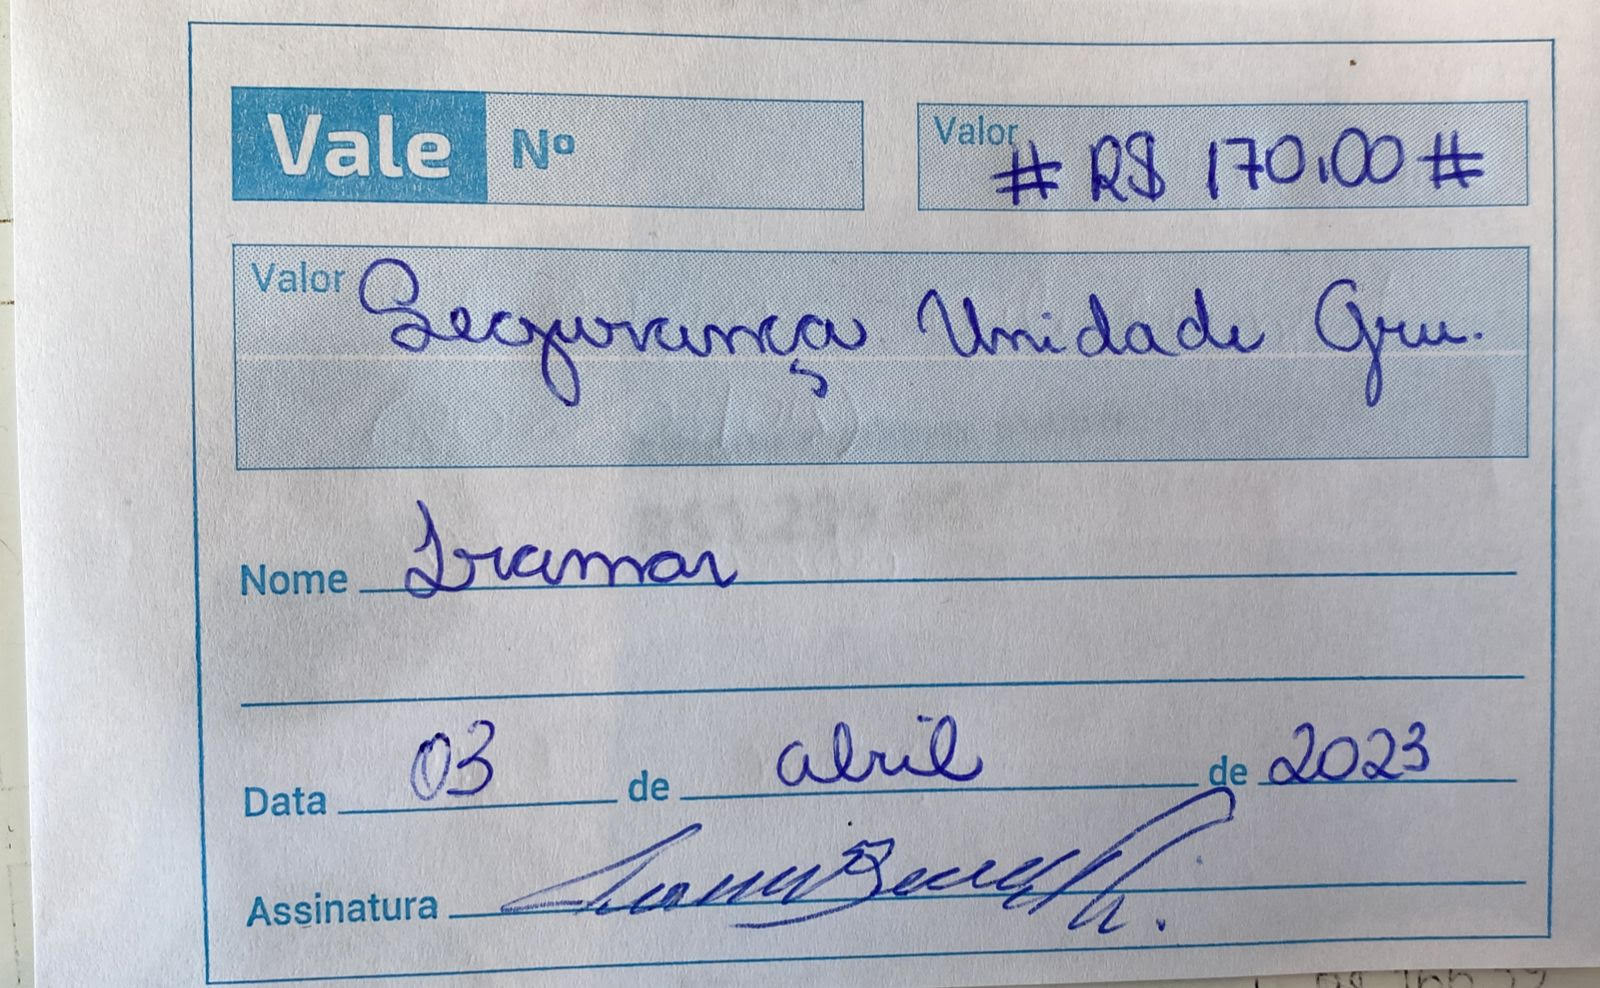 Vale Nº
Valor # R$ 170,00 #
Valor Segurança Unidade Gru.
Nome Iramar
Data 03 de abril de 2023
Assinatura